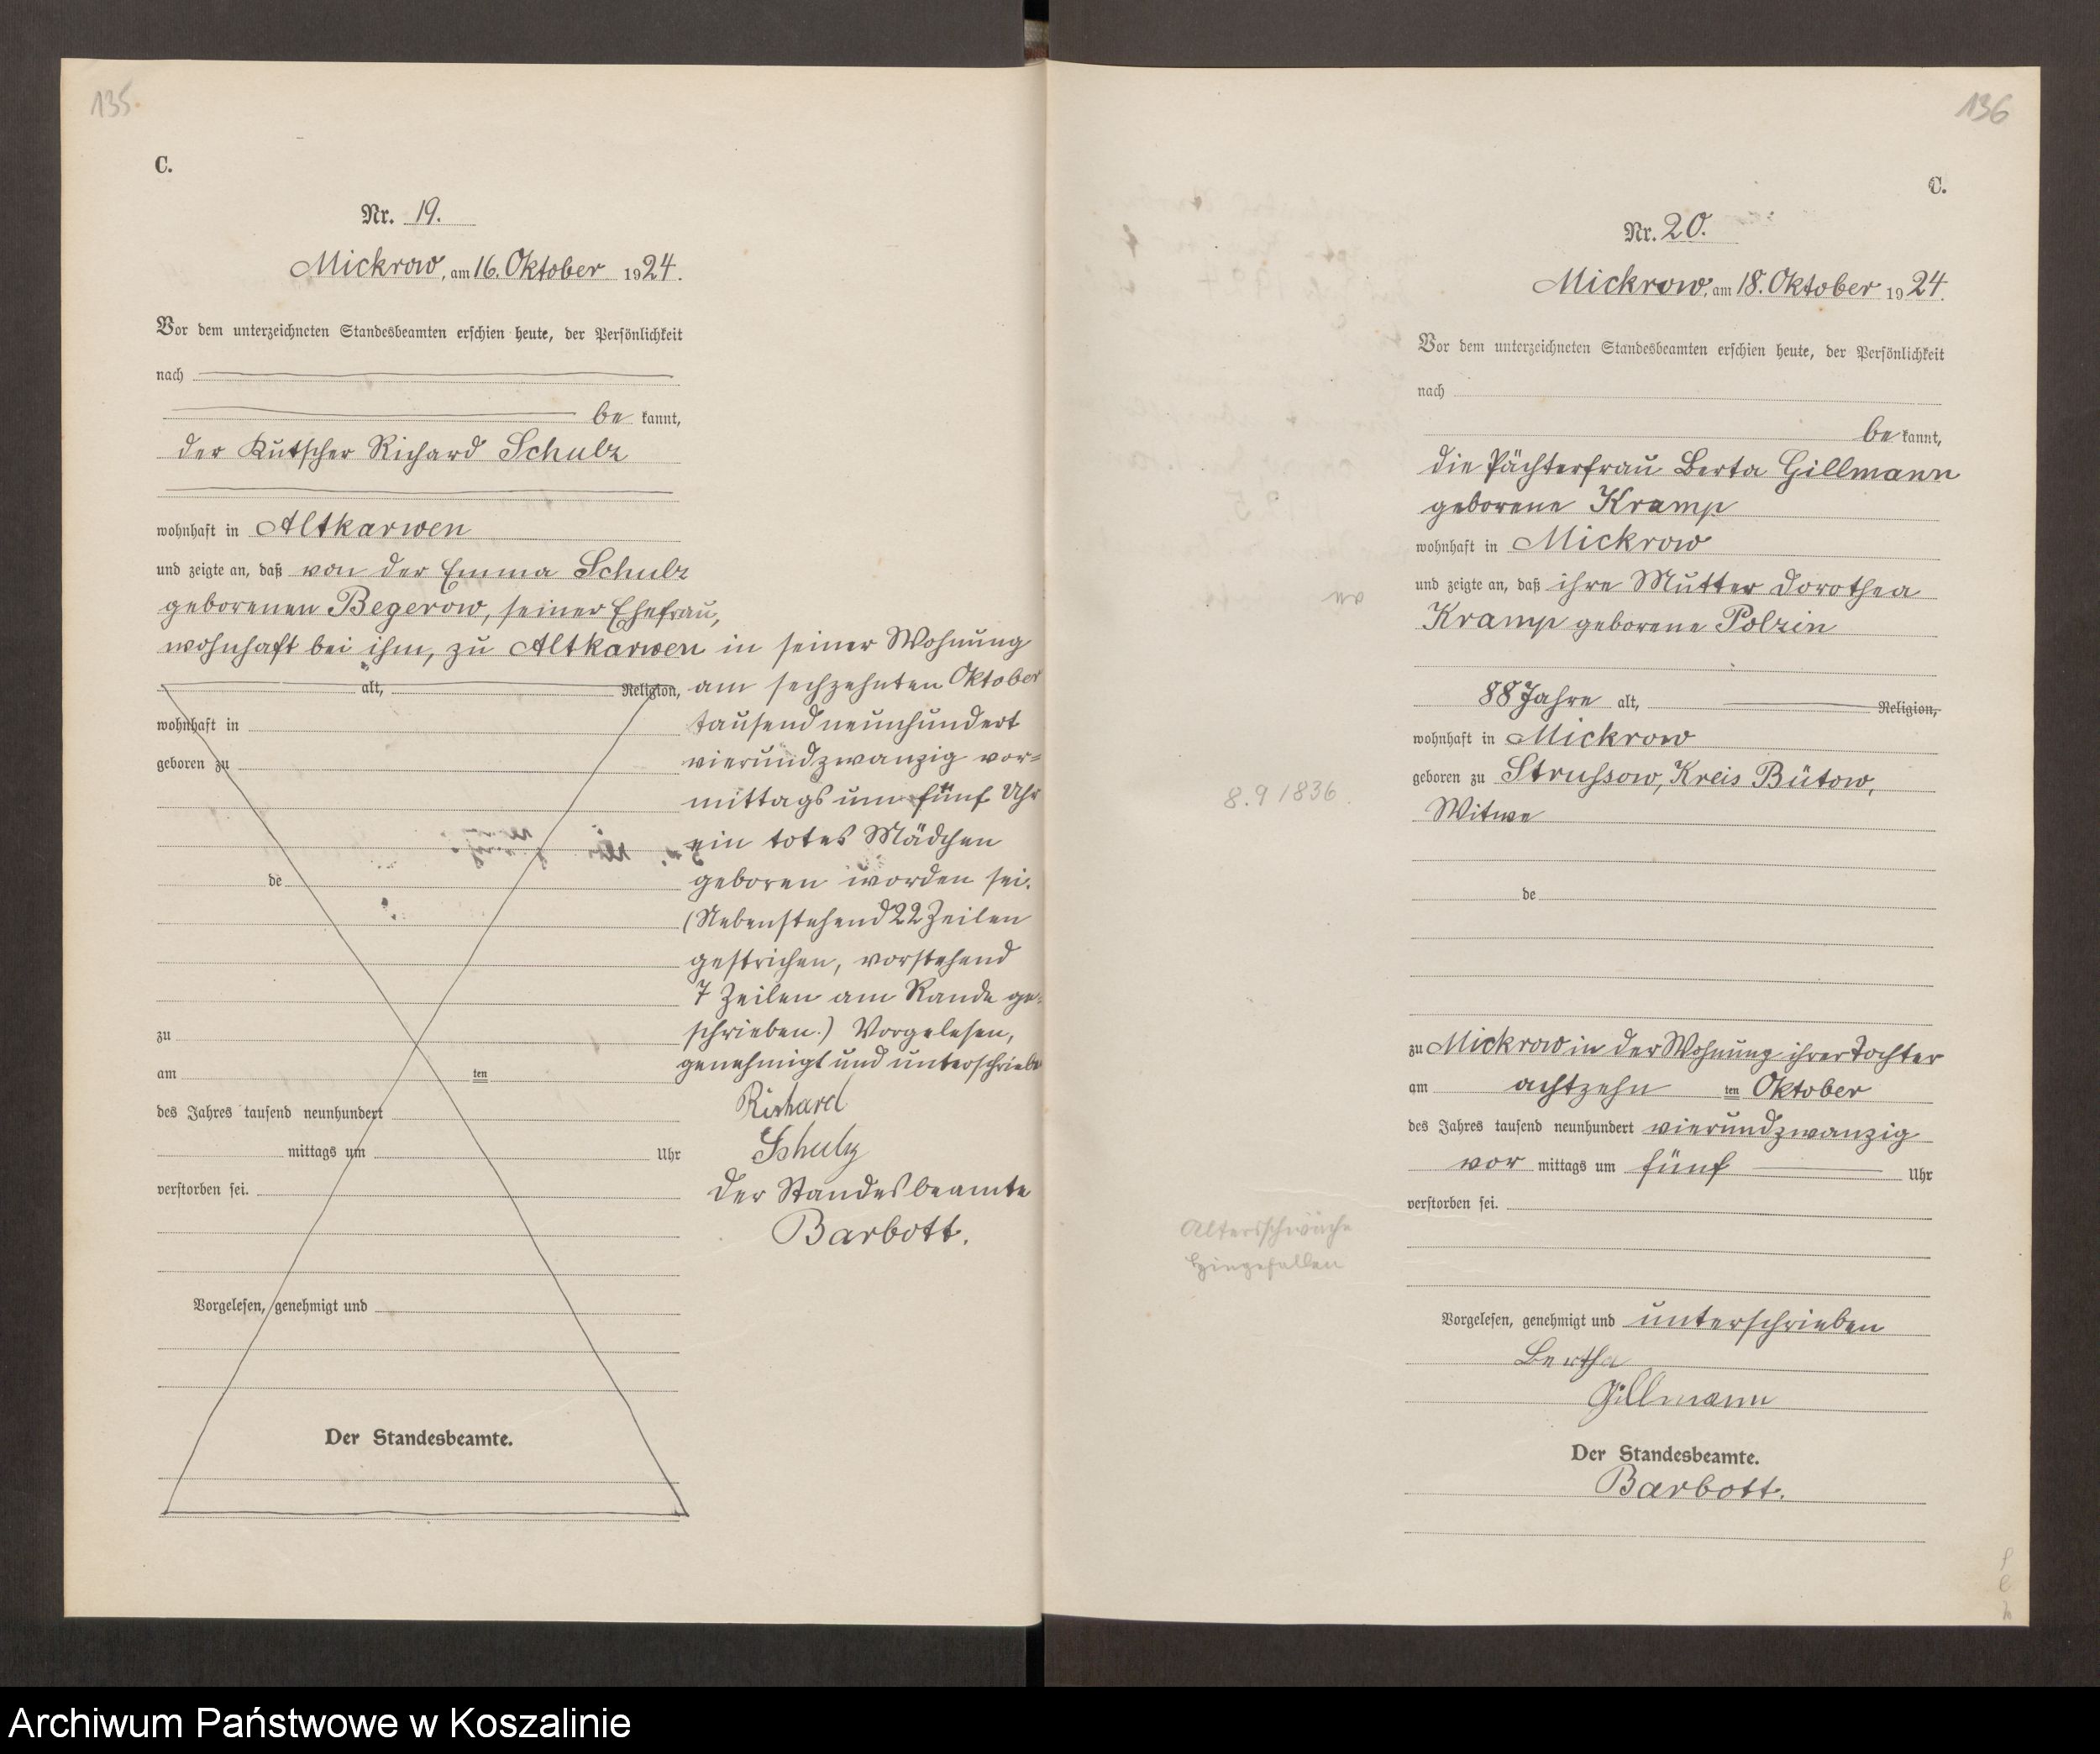 135.
C.
Nr. 19.
Mickrow, am 16. Oktober 1924.
Vor dem unterzeichneten Standesbeamten erschien heute, der Persönlichkeit
nach
be kannt,
der Kutscher Richard Schulz
wohnhaft in Altkarwen
und zeigte an, daß von der Emma Schulz
geborenen Begerow, seiner Ehefrau,
wohnhaft bei ihm, zu Altkarwen in seiner Wohnung
alt, Religion, am sechzehnten Oktober
wohnhaft in tausend neunhundert
geboren zu vierundzwanzig vor=
mittags um fünf Uhr
ein totes Mädchen
de geboren worden sei.
(Nebenstehend 22 Zeilen
gestrichen, vorstehend
7 Zeilen am Rande ge=
zu schrieben.) Vorgelesen,
am ten genehmigt und unterschrieben
des Jahres tausend neunhundert Richard
mittags um Uhr Schulz
verstorben sei. Der Standesbeamte
Barbott.
Vorgelesen, genehmigt und
Der Standesbeamte.
136
C.
Nr. 20.
Mickrow, am 18. Oktober 1924.
Vor dem unterzeichneten Standesbeamten erschien heute, der Persönlichkeit
nach
be kannt,
die Pächterfrau Berta Gillmann
geborene Kramp
wohnhaft in Mickrow
und zeigte an, daß ihre Mutter Dorothea
Kramp geborene Polzin
88 Jahre alt, Religion,
wohnhaft in Mickrow
geboren zu Strussow, Kreis Bütow,
8.9 1836.
Witwe
de
zu Mickrow in der Wohnung ihrer Tochter
am achtzehn ten Oktober
des Jahres tausend neunhundert vierundzwanzig
vor mittags um fünf Uhr
verstorben sei.
Altersschwäche
Hingefallen
Vorgelesen, genehmigt und unterschrieben
Bertha
Gillmann
Der Standesbeamte.
Barbott.
Archiwum Państwowe w Koszalinie